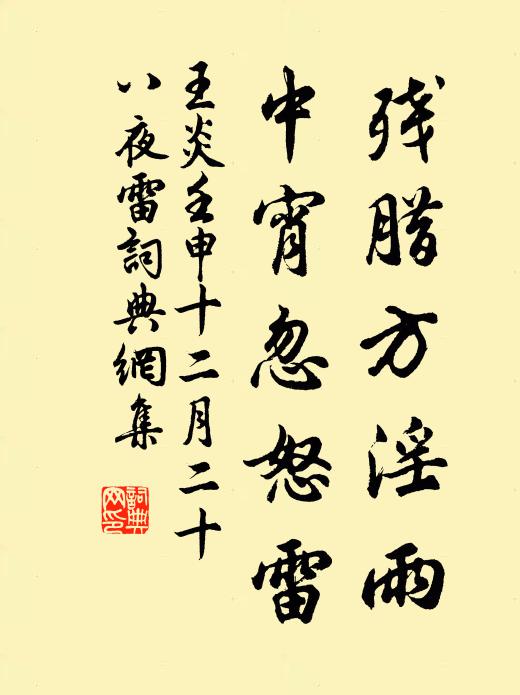 残腊方淫雨
中宵忽怒雷
王炎壬申十二月二十
八夜雷詞典網集
詞典网印